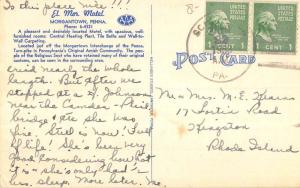 To this place nite !!!
El Mor Motel
MORGANTOWN, PENNA.
Phone 6-4921
AAA
A pleasant and desirable located Motel, with spacious, well
furnished rooms. Central Heating Plant. Tile Baths and Wall-to-
Wall Carpeting.
Located just off the Morgantown Interchange of the Penna.
Turnpike in Pennsylvania's Original Amish Community. The
people in this area have retained many of their original
customs, can be seen in the surrounding area.
cried nearly the whole
length. But after we
stopped at a H. Johnson
near the Camden - Phil.
Bridge, ate she was
fine. Still is now! Full
of life! She's been very
good considering how hot
it is - she's only had 2
hrs. sleep. More later, Me.
POST CARD
PA.
U.S. POSTAGE
1 CENT 1
U.S. POSTAGE
1 CENT 1
Mr. & Mrs. M. E. Kearns
17 Fortin Road
Kingston
Rhode Island